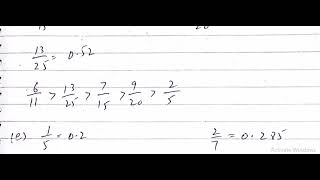 20
13/25 = 0.52
6/11 > 13/25 > 7/15 > 9/20 > 2/5
(e) 1/5 = 0.2 2/7 = 0.285
Activate Windows